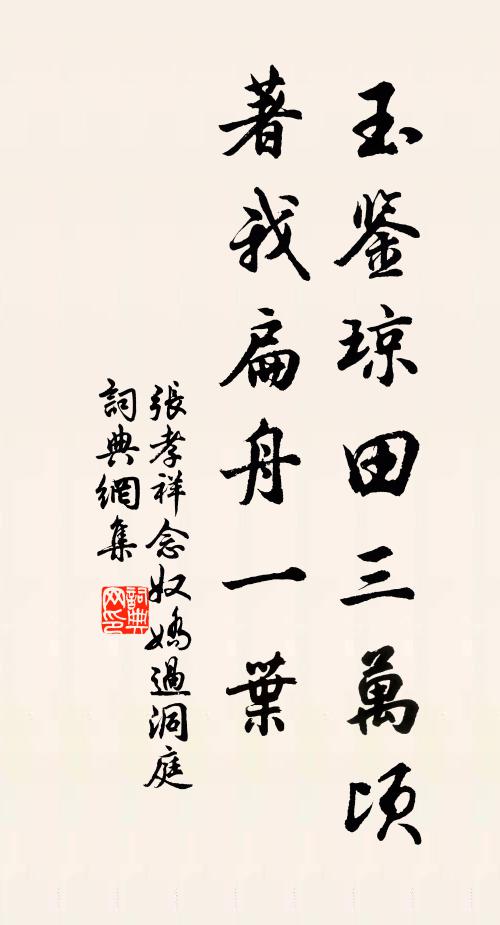 玉鉴琼田三萬頃
著我扁舟一葉
張孝祥念奴嬌過洞庭
詞典網集
詞典网印